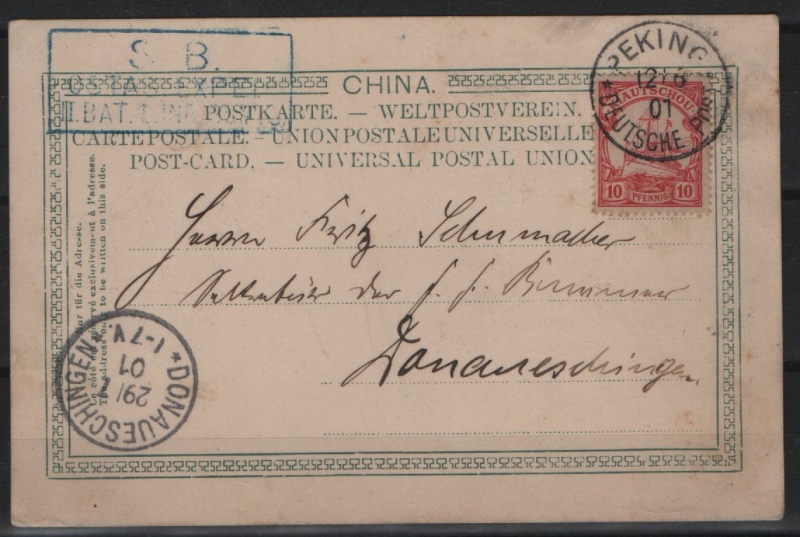 S. B.
II. BAT. 1. INF.
CHINA.
POSTKARTE. — WELTPOSTVEREIN.
CARTE POSTALE. — UNION POSTALE UNIVERSELLE
POST-CARD. — UNIVERSAL POSTAL UNION
PEKING
12/6
01
* DEUTSCHE POST *
KIAUTSCHOU
10 PFENNIG 10
Herrn Fritz Schumacher
der f. f.
Donaueschingen
nur für die Adresse.
Le côté est réservé exclusivement à l'adresse.
The address only to be written on this side.
* DONAUESCHINGEN *
29/7
01
1-7V.